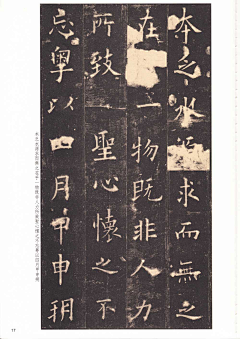 本乏水源求而無之
在乎一物既非人力
所致聖心懷之不
忘粵以四月甲申朔
17